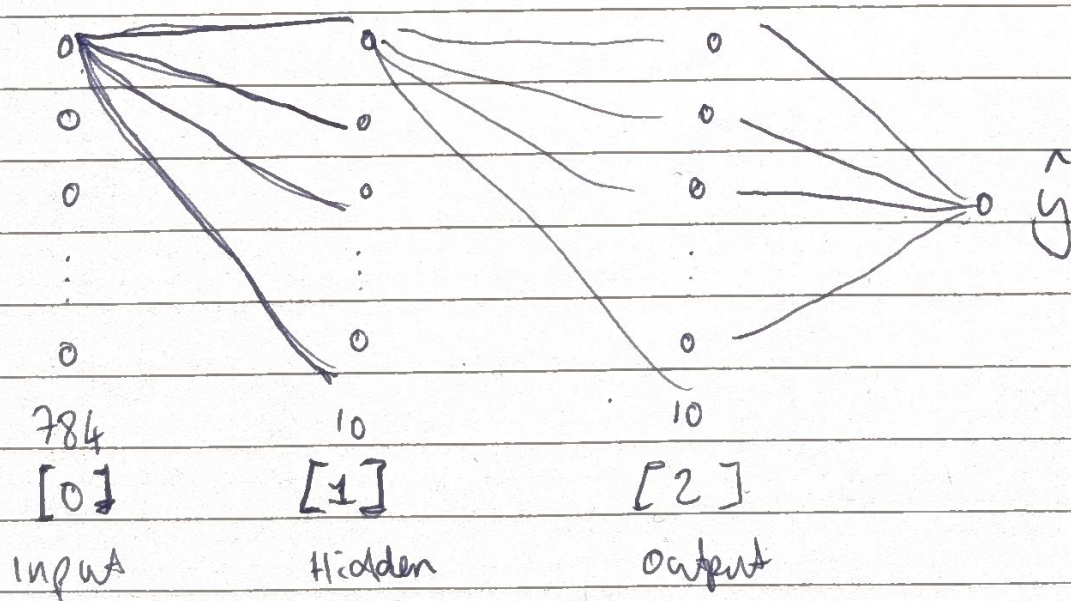 ŷ
784 10 10
[0] [1] [2]
Input Hidden Output